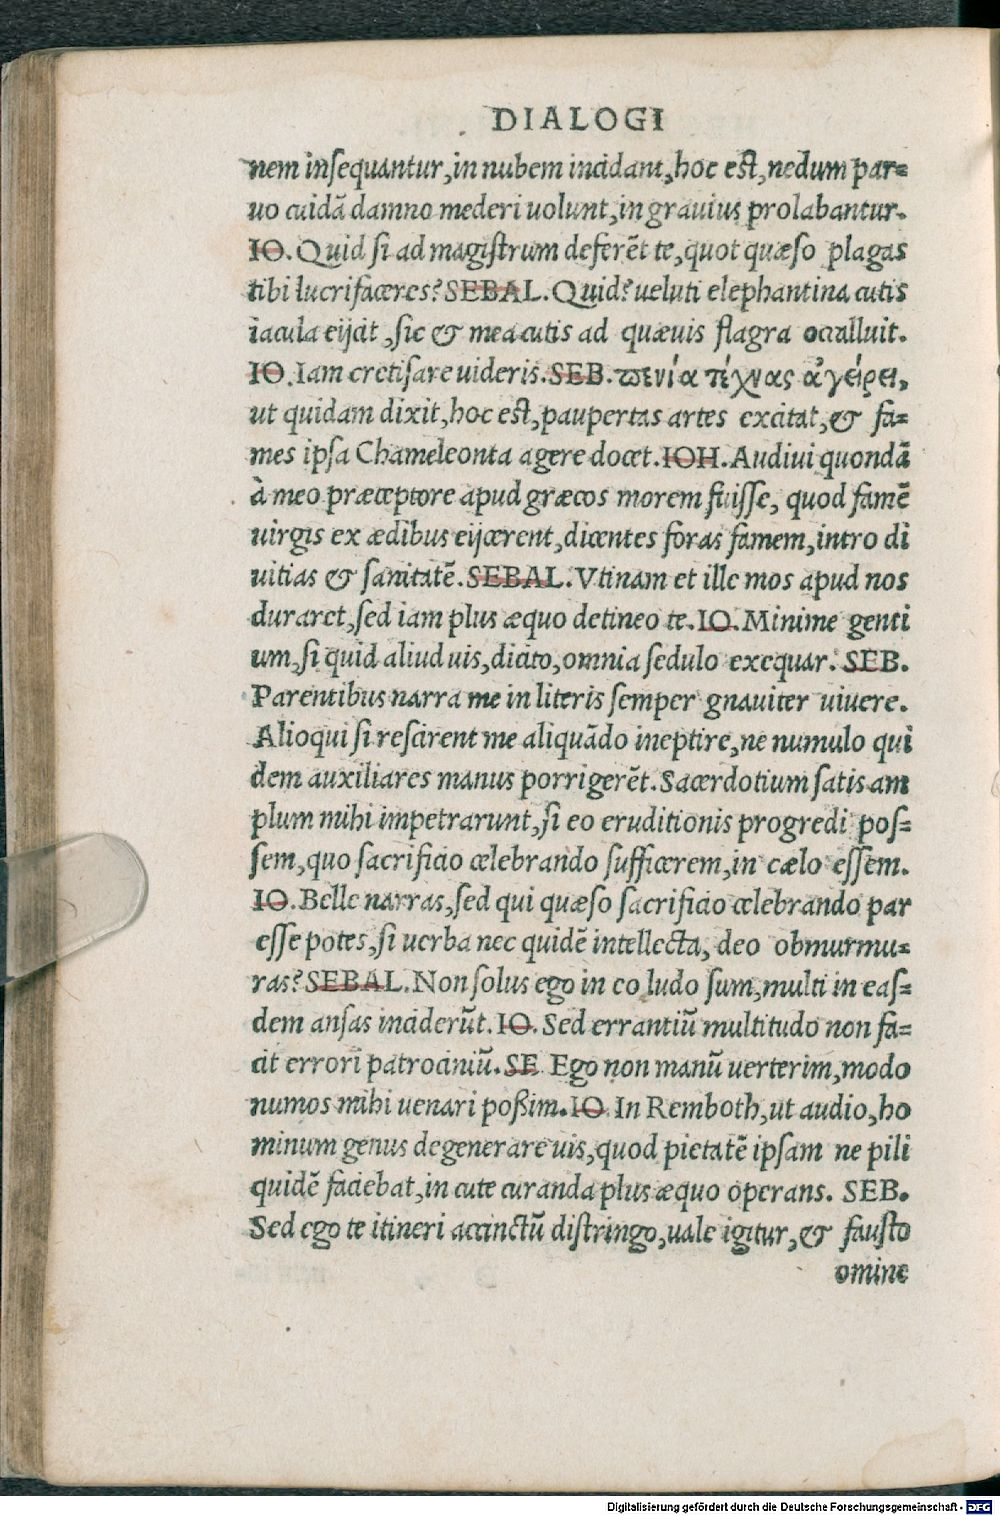 DIALOGI
nem insequantur, in nubem incidant, hoc est, nedum par=
uo cuidā damno mederi uolunt, in grauius prolabantur.
IO. Quid si ad magistrum deferēt te, quot quæso plagas
tibi lucrifaceres? SEBAL. Quid? ueluti elephantina cutis
iacula eijcit, sic & mea cutis ad quæuis flagra occalluit.
IO. Iam cretisare uideris. SEB. πενία τέχνας ἀγείρει,
ut quidam dixit, hoc est, paupertas artes excitat, & fa=
mes ipsa Chameleonta agere docet. IOH. Audiui quondā
à meo præceptore apud græcos morem fuisse, quod famē
uirgis ex ædibus eijcerent, dicentes foras famem, intro di
uitias & sanitatē. SEBAL. Vtinam et ille mos apud nos
duraret, sed iam plus æquo detineo te. IO. Minime genti
um, si quid aliud uis, dicito, omnia sedulo exequar. SEB.
Parentibus narra me in literis semper gnauiter uiuere.
Alioqui si rescirent me aliquādo ineptire, ne numulo qui
dem auxiliares manus porrigerēt. Sacerdotium satis am
plum mihi impetrarunt, si eo eruditionis progredi pos=
sem, quo sacrificio celebrando sufficerem, in cælo essem.
IO. Belle narras, sed qui quæso sacrificio celebrando par
esse potes, si uerba nec quidē intellecta, deo obmurmu=
ras? SEBAL. Non solus ego in eo ludo sum, multi in eas=
dem ansas inciderūt. IO. Sed errantiū multitudo non fa=
cit errori patrociniū. SE Ego non manū uerterim, modo
numos mihi uenari poßim. IO. In Remboth, ut audio, ho
minum genus degenerare uis, quod pietatē ipsam ne pili
quidē faciebat, in cute curanda plus æquo operans. SEB.
Sed ego te itineri accinctū distringo, uale igitur, & fausto
omine
Digitalisierung gefördert durch die Deutsche Forschungsgemeinschaft - DFG